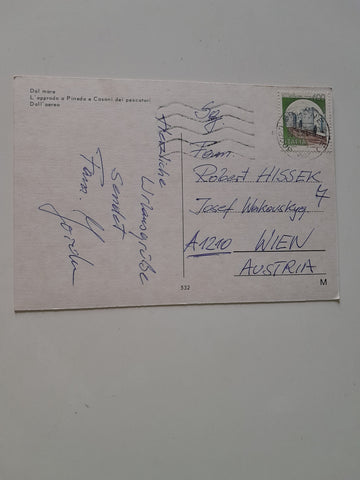 Dal mare
L'approdo a Pineda e Casoni dei pescatori
Dall'aereo
Herzliche
Urlaubsgrüße
sendet
Fam.
400
ITALIA
Fam.
Robert HISSEK
Josef 7
A1210 WIEN
AUSTRIA
532
M